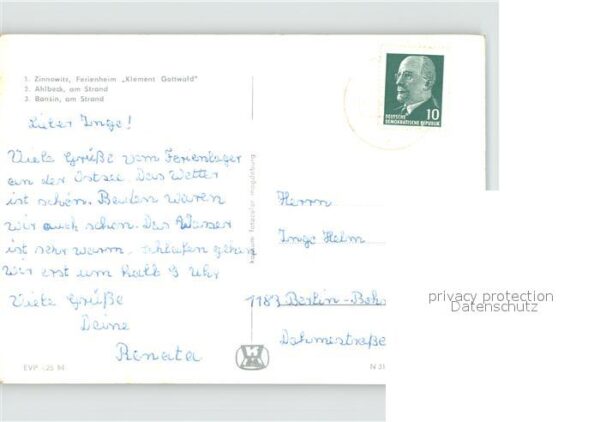 1. Zinnowitz, Ferienheim „Klement Gottwald"
2. Ahlbeck, am Strand
3. Bansin, am Strand
DEUTSCHE
DEMOKRATISCHE REPUBLIK
10
Lieber Ingo!
Viele Grüße vom Ferienlager
an der Ostsee. Das Wetter
ist schön. Baden waren
wir auch schon. Das Wasser
ist sehr warm. Schlafen gehen
wir erst um halb 9 Uhr
Viele Grüße
Deine
Renata
magdeburg
Herrn
Ingo Helm
1183 Berlin-Boh
Dahmestraße
EVP -,25 M
N 31
privacy protection
Datenschutz